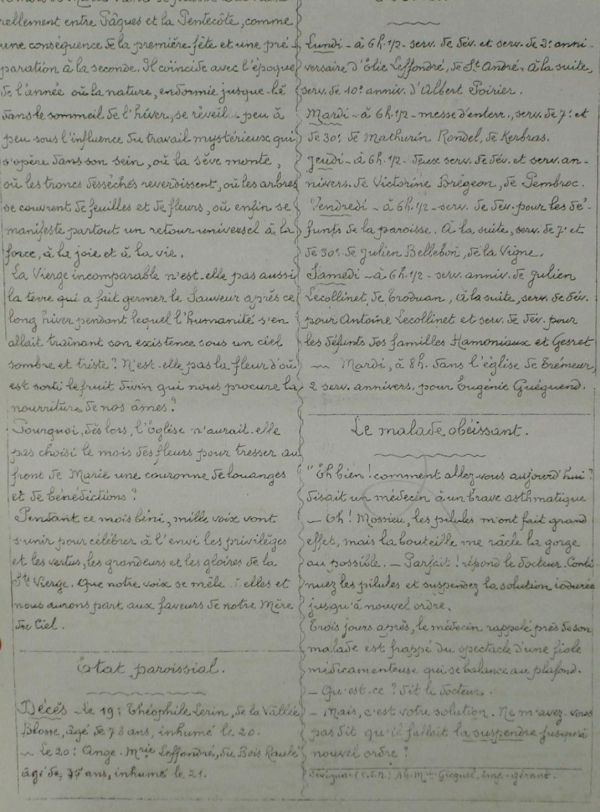 rellement entre Pâques et la Pentecôte, comme
une conséquence de la première fête et une pré-
paration à la seconde. Il coïncide avec l'époque
de l'année où la nature, endormie jusque-là
dans le sommeil de l'hiver, se réveil peu à
peu sous l'influence du travail mystérieux qui
s'opère dans son sein, où la sève monte,
où les troncs desséchés reverdissent, où les arbres
se couvrent de feuilles et de fleurs, où enfin se
manifeste partout un retour universel à la
force, à la joie et à la vie.
La Vierge incomparable n'est-elle pas aussi
la terre qui a fait germer le Sauveur après ce
long hiver pendant lequel l'Humanité s'en
allait traînant son existence sous un ciel
sombre et triste? N'est-elle pas la fleur d'où
est sorti le fruit divin qui nous procure la
nourriture de nos âmes?
Pourquoi, dès lors, l'Eglise n'aurait-elle
pas choisi le mois des fleurs pour tresser au
front de Marie une couronne de louanges
et de bénédictions?
Pendant ce mois béni, mille voix vont
s'unir pour célébrer à l'envi les privilèges
et les vertus, les grandeurs et les gloires de la
Ste Vierge. Que notre voix se mêle à elles et
nous aurons part aux faveurs de notre Mère
du Ciel.
Etat paroissial.
Décès - Le 19: Théophile Lerin, de la Vallée
Blosne, âgé de 73 ans, inhumé le 20.
~ Le 20: Ange-Marie Leffondré, du Bois
âgé de ans, inhumé le 21.
Lundi - à 6h.1/2 - serv. de dév. et serv. de 2e anni-
versaire d'Elie Leffondré, de St. André. A la suite,
serv. de 10e anniv. d'Albert Poirier.
Mardi - à 6h.1/2 - messe d'enterr., serv. de 7e et
de 30e de Mathurin Rondel, de Kerbras.
Jeudi - à 6h.1/2 - deux serv. de dév. et serv. an-
nivers. de Victorine Brégeon, de Pembroc.
Vendredi - à 6h.1/2 - serv. de dév. pour les dé-
funts de la paroisse. A la suite, serv. de 7e et
de 30e de Julien Bellebon, de la Vigne.
Samedi - à 6h.1/2 - serv. anniv. de Julien
Lecollinet, de Eroduan, à la suite, serv. de dév.
pour Antoine Lecollinet et serv. de dév. pour
les défunts des familles Hamoniaux et Gesret
~ Mardi, à 8h. dans l'église de Trémeur,
2 serv. annivers. pour Eugénie Guéguend.
Le malade obéissant.
"Eh bien! comment allez-vous aujourd'hui?
disait un médecin à un brave asthmatique
— Oh! Mossieu, les pilules m'ont fait grand
effet, mais la bouteille me râcle la gorge
au possible. — Parfait! répond le docteur. Conti-
nuez les pilules et suspendez la solution iodurée
jusqu'à nouvel ordre.
Trois jours après, le médecin rappelé près de son
malade est frappé du spectacle d'une fiole
médicamenteuse qui se balance au plafond.
— Qu'est-ce? dit le docteur.
— Mais, c'est votre solution. Ne m'avez-vous
pas dit qu'il fallait la suspendre jusqu'à
nouvel ordre?
(C.d.N.) Gicquel, imp.-gérant.